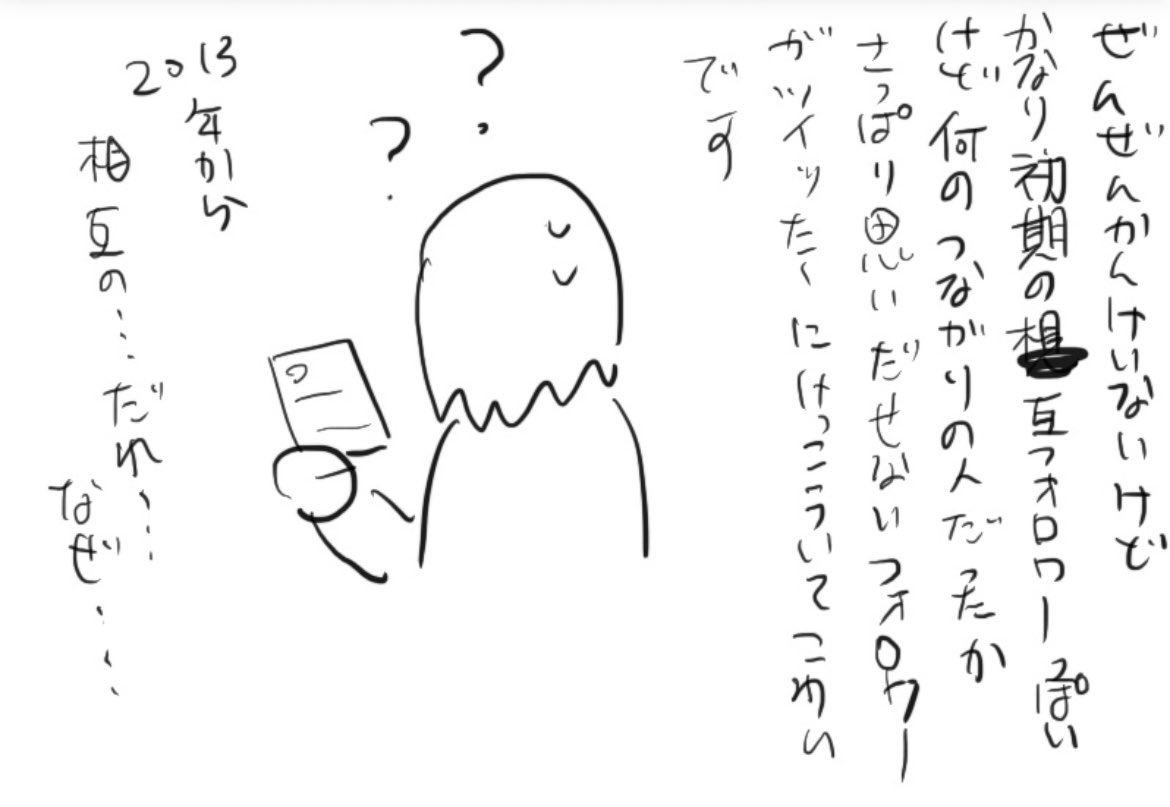 ぜんぜんかんけいないけど
かなり初期の相互フォロワーぽい
けど何のつながりの人だったか
さっぱり思いだせないフォロワー
がツイッターにけっこういてこわい
です
?
?
2013
年から
相互の…
だれ……
なぜ……